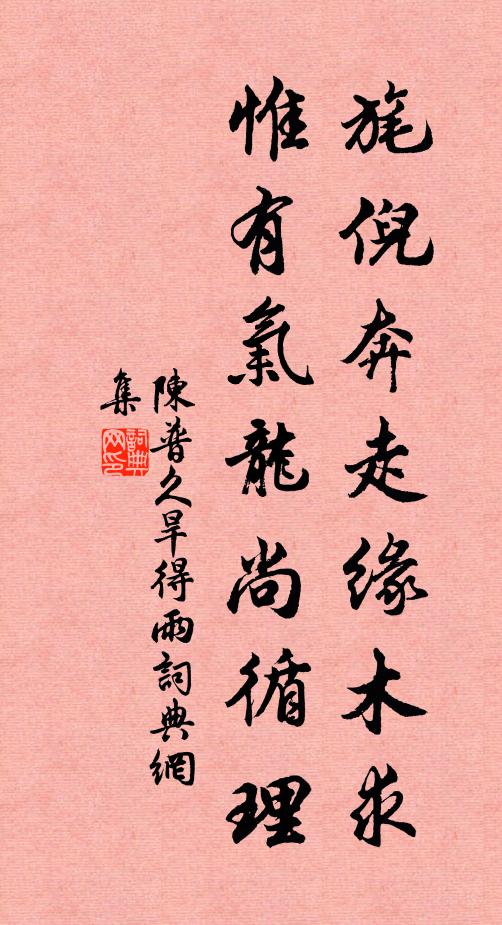 旄倪奔走緣木求
惟有氣龍尚循理
陳普久旱得雨詞典網
集
詞典
网印